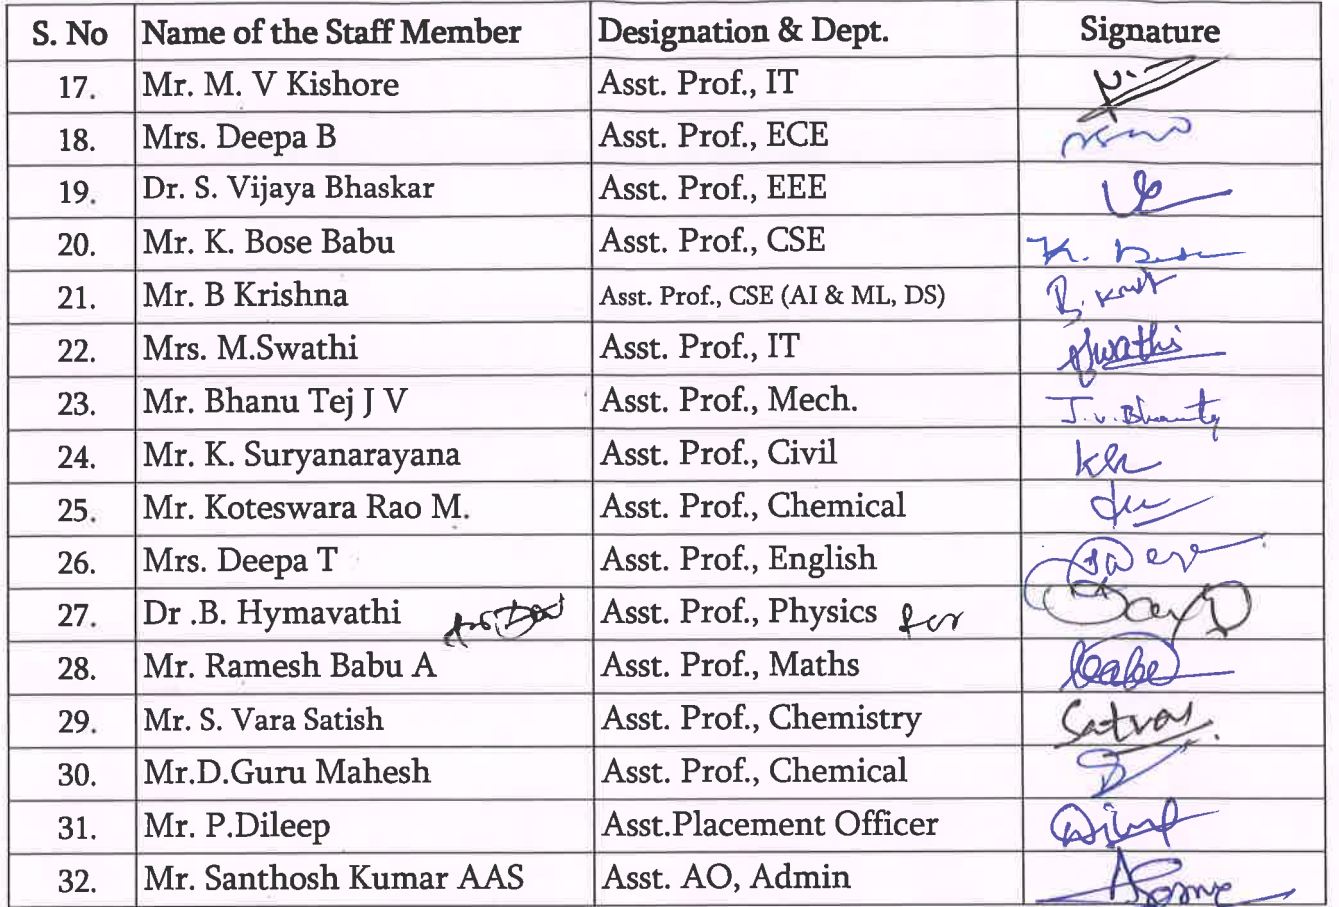 S. No Name of the Staff Member Designation & Dept. Signature
17. Mr. M. V Kishore Asst. Prof., IT
18. Mrs. Deepa B Asst. Prof., ECE
19. Dr. S. Vijaya Bhaskar Asst. Prof., EEE
20. Mr. K. Bose Babu Asst. Prof., CSE K.
21. Mr. B Krishna Asst. Prof., CSE (AI & ML, DS) B.
22. Mrs. M.Swathi Asst. Prof., IT Swathi
23. Mr. Bhanu Tej J V Asst. Prof., Mech. J.v.
24. Mr. K. Suryanarayana Asst. Prof., Civil
25. Mr. Koteswara Rao M. Asst. Prof., Chemical
26. Mrs. Deepa T Asst. Prof., English
27. Dr .B. Hymavathi Asst. Prof., Physics for
28. Mr. Ramesh Babu A Asst. Prof., Maths
29. Mr. S. Vara Satish Asst. Prof., Chemistry
30. Mr.D.Guru Mahesh Asst. Prof., Chemical
31. Mr. P.Dileep Asst.Placement Officer
32. Mr. Santhosh Kumar AAS Asst. AO, Admin